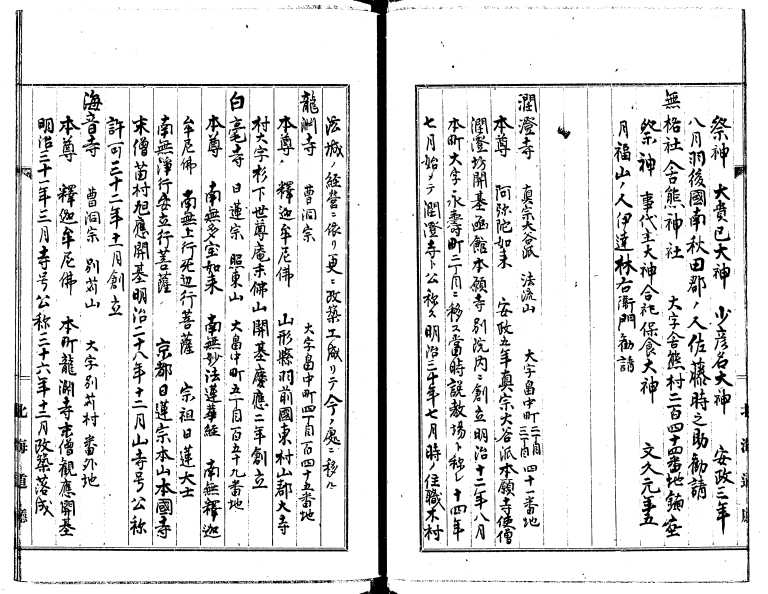 祭神　大貴已大神　少彦名大神　安政三年
八月羽後國南秋田郡ノ人佐藤時之助勧請
無格社舎熊神社　大字舎熊村二百四十四番地鎮座
祭神　事代主大神合祀保食大神　文久元年五
月福山ノ人伊達林右衛門勧請
潤澄寺　真宗大谷派　法流山　大字畠中町二丁目三丁目四十一番地
本尊　阿弥陀如来　安政五年真宗大谷派本願寺使僧
潤澄坊開基函館本願寺別院内ニ創立明治十二年八月
本町大字永壽町二丁目ニ移ス當時説教場ト称シ十四年
七月始メテ潤澄寺ト公称ス明治三十年七月時ノ住職木村
法城ノ経営ニ依リ更ニ改築工成リテ今ノ處ニ移ル
龍渕寺　曹洞宗　大字畠中町四丁目百四十五番地
本尊　釋迦牟尼佛　山形縣羽前國東村山郡大寺
村大字杉下世尊庵末佛山開基慶應二年創立
白毫寺　日蓮宗　照東山　大畠中町五丁目百五十九番地
本尊　南無多宝如来　南無妙法蓮華経　南無釋迦
牟尼佛　南無上行無辺行菩薩　宗祖日蓮大士
南無浄行安立行菩薩　京都日蓮宗本山本國寺
末僧苗村旭應開基明治二十八年十二月山寺号公称
許可三十二年十一月創立
海音寺　曹洞宗　別苅山　大字別苅村番外地
本尊　釋迦牟尼佛　本町龍渕寺末僧観應開基
明治二十一年三月寺号公称二十六年十二月改築落成
北海道廳
北海道廳